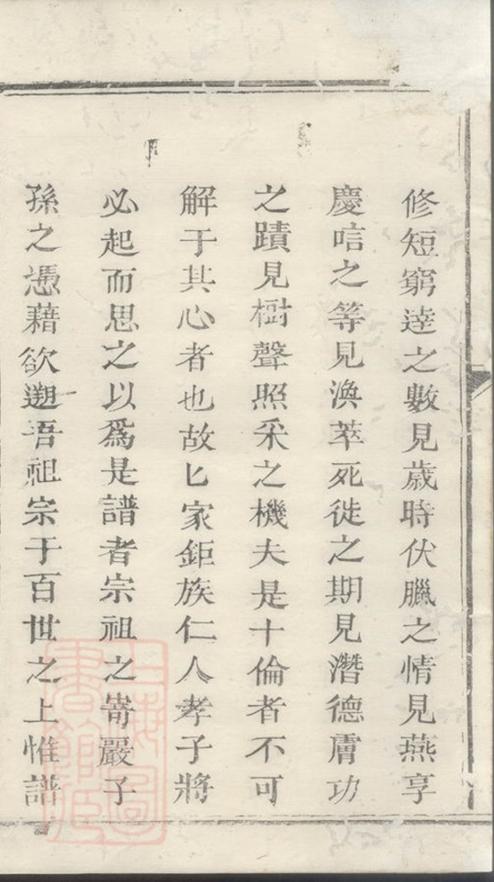 修短窮逹之數見歲時伏臘之情見燕享
慶唁之等見渙萃死徙之期見潛德膚功
之蹟見樹聲照采之機夫是十倫者不可
解于其心者也故匕家鉅族仁人孝子將
必起而思之以爲是譜者宗祖之嵜嚴子
孫之憑藉欲遡吾祖宗于百世之上惟譜
上海圖書館藏